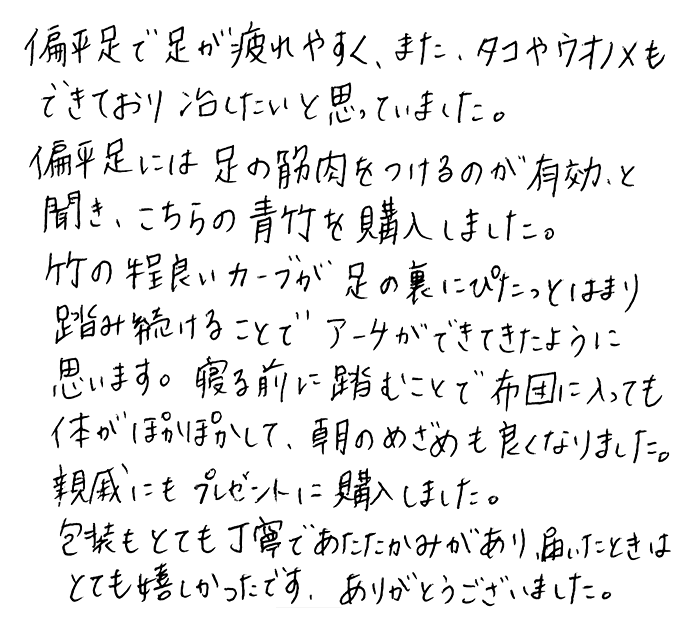 偏平足で足が疲れやすく、また、タコやウオノメも
できており治したいと思っていました。
偏平足には足の筋肉をつけるのが有効、と
聞き、こちらの青竹を購入しました。
竹の程良いカーブが足の裏にぴたっとはまり
踏み続けることでアーチができてきたように
思います。寝る前に踏むことで布団に入っても
体がぽかぽかして、朝のめざめも良くなりました。
親戚にもプレゼントに購入しました。
包装もとても丁寧であたたかみがあり、届いたときは
とても嬉しかったです。ありがとうございました。